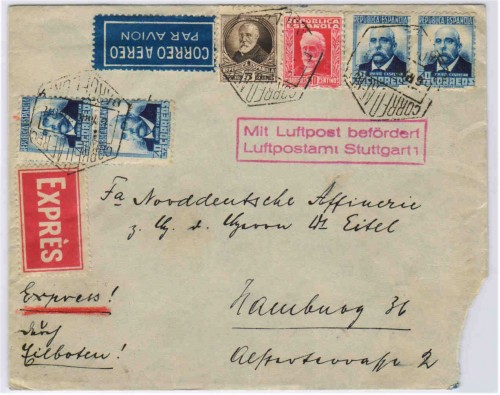 CORREO AEREO
PAR AVION
REPUBLICA ESPAÑOLA
CORREOS
Mit Luftpost befördert
Luftpostamt Stuttgart 1
EXPRÈS
Fa Norddeutsche Affinerie
z. Hd. d. Herrn Eitel
Express!
durch
Eilboten!
Hamburg 36
Alsterterrasse 2